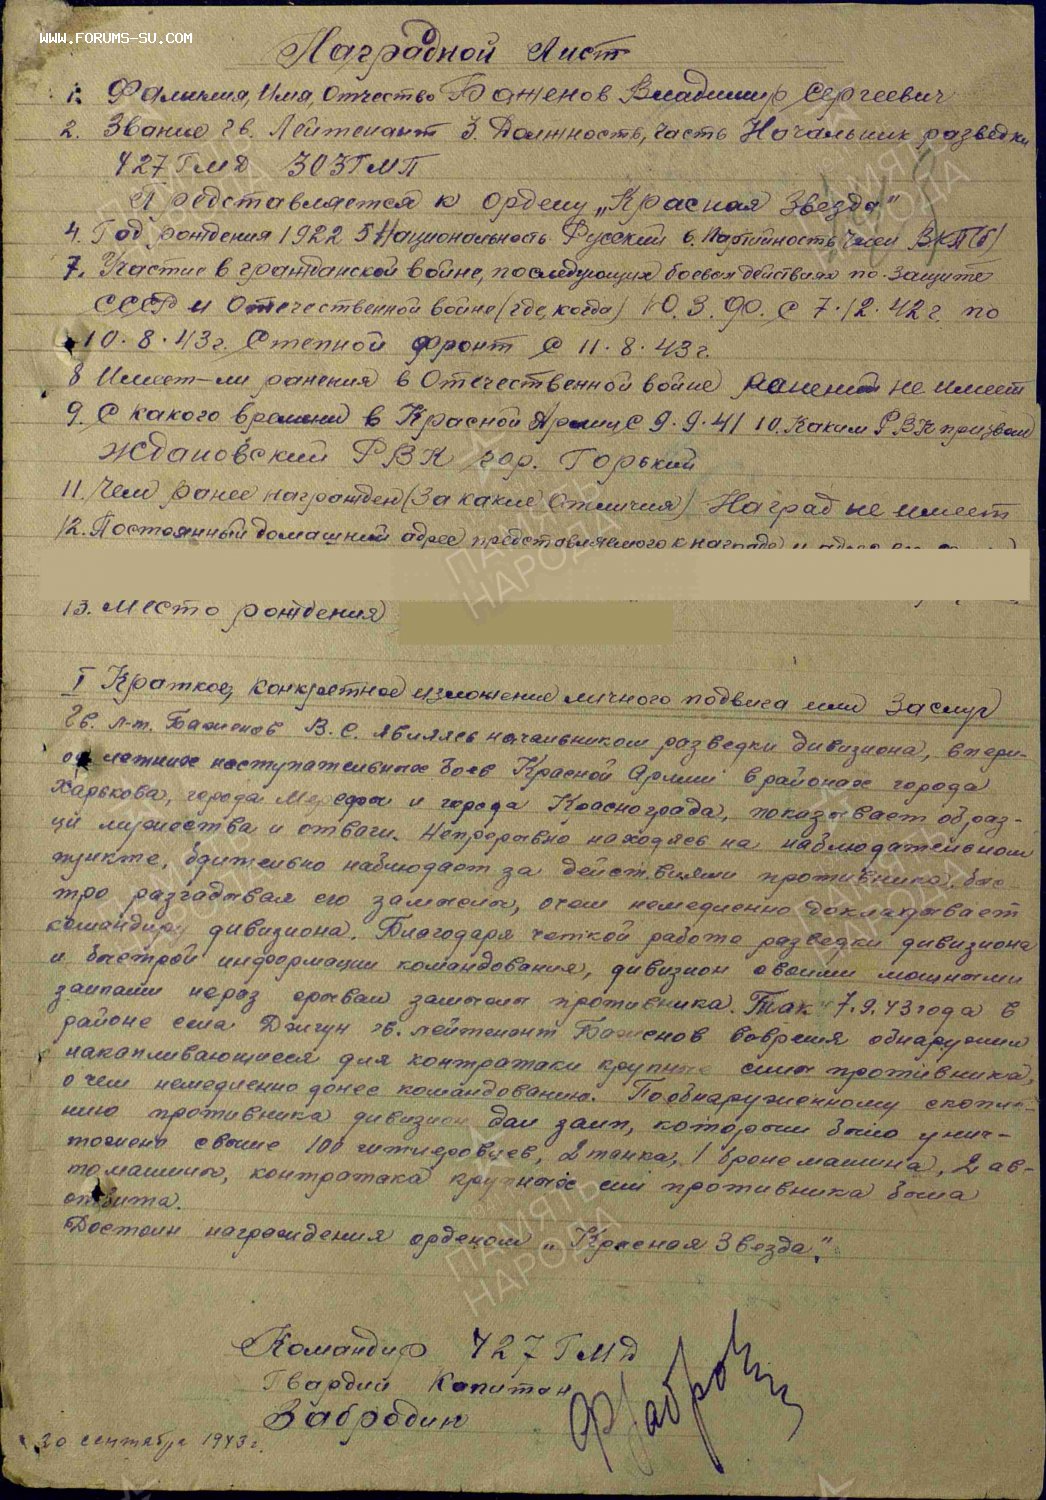 WWW.FORUMS-SU.COM
Наградной Лист
1. Фамилия, Имя, Отчество Баженов Владимир Сергеевич
2. Звание гв. Лейтенант 3. Должность, часть Начальник разведки
427 ГМД 303 ГМП
Представляется к ордену „Красная Звезда"
4. Год рождения 1922 5 Национальность Русский 6. Партийность Член ВКП(б)
7. Участие в гражданской войне, последующих боевых действиях по защите
СССР и Отечественной войне (где, когда) Ю.З.Ф. С 7.12.42 г. по
10.8.43 г. Степной фронт С 11.8.43 г.
8 Имеет-ли ранения в Отечественной войне ранений не имеет
9. С какого времени в Красной Армии С 9.9.41 10. Каким РВК призван
Ждановский РВК гор. Горький
11. Чем ранее награжден (за какие отличия) Наград не имеет
12. Постоянный домашний адрес представляемого к награде и адрес его
13. Место рождения
I Краткое, конкретное изложение личного подвига или заслуг
Гв. л-т. Баженов В.С. являясь начальником разведки дивизиона, в пери-
од летних наступательных боев Красной Армии в районах города
Харькова, города Мерефы и города Краснограда, показывает образ-
цы мужества и отваги. Непрерывно находясь на наблюдательном
пункте, бдительно наблюдает за действиями противника, быс-
тро разгадывая его замыслы, о чем немедленно докладывает
командиру дивизиона. Благодаря четкой работе разведки дивизиона
и быстрой информации командования, дивизион своими мощными
залпами не раз срывал замыслы противника. Так 7.9.43 года в
районе села Джгун гв. лейтенант Баженов вовремя обнаружил
накапливающиеся для контратаки крупные силы противника,
о чем немедленно донес командованию. По обнаруженному скопле-
нию противника дивизион дал залп, которым было унич-
тожено свыше 100 гитлеровцев, 2 танка, 1 бронемашина, 2 ав-
томашины, контратака крупных сил противника была
отбита.
Достоин награждения орденом „Красная Звезда".
Командир 427 ГМД
Гвардии Капитан
Забродин
30 сентября 1943 г.
ПАМЯТЬ
НАРОДА